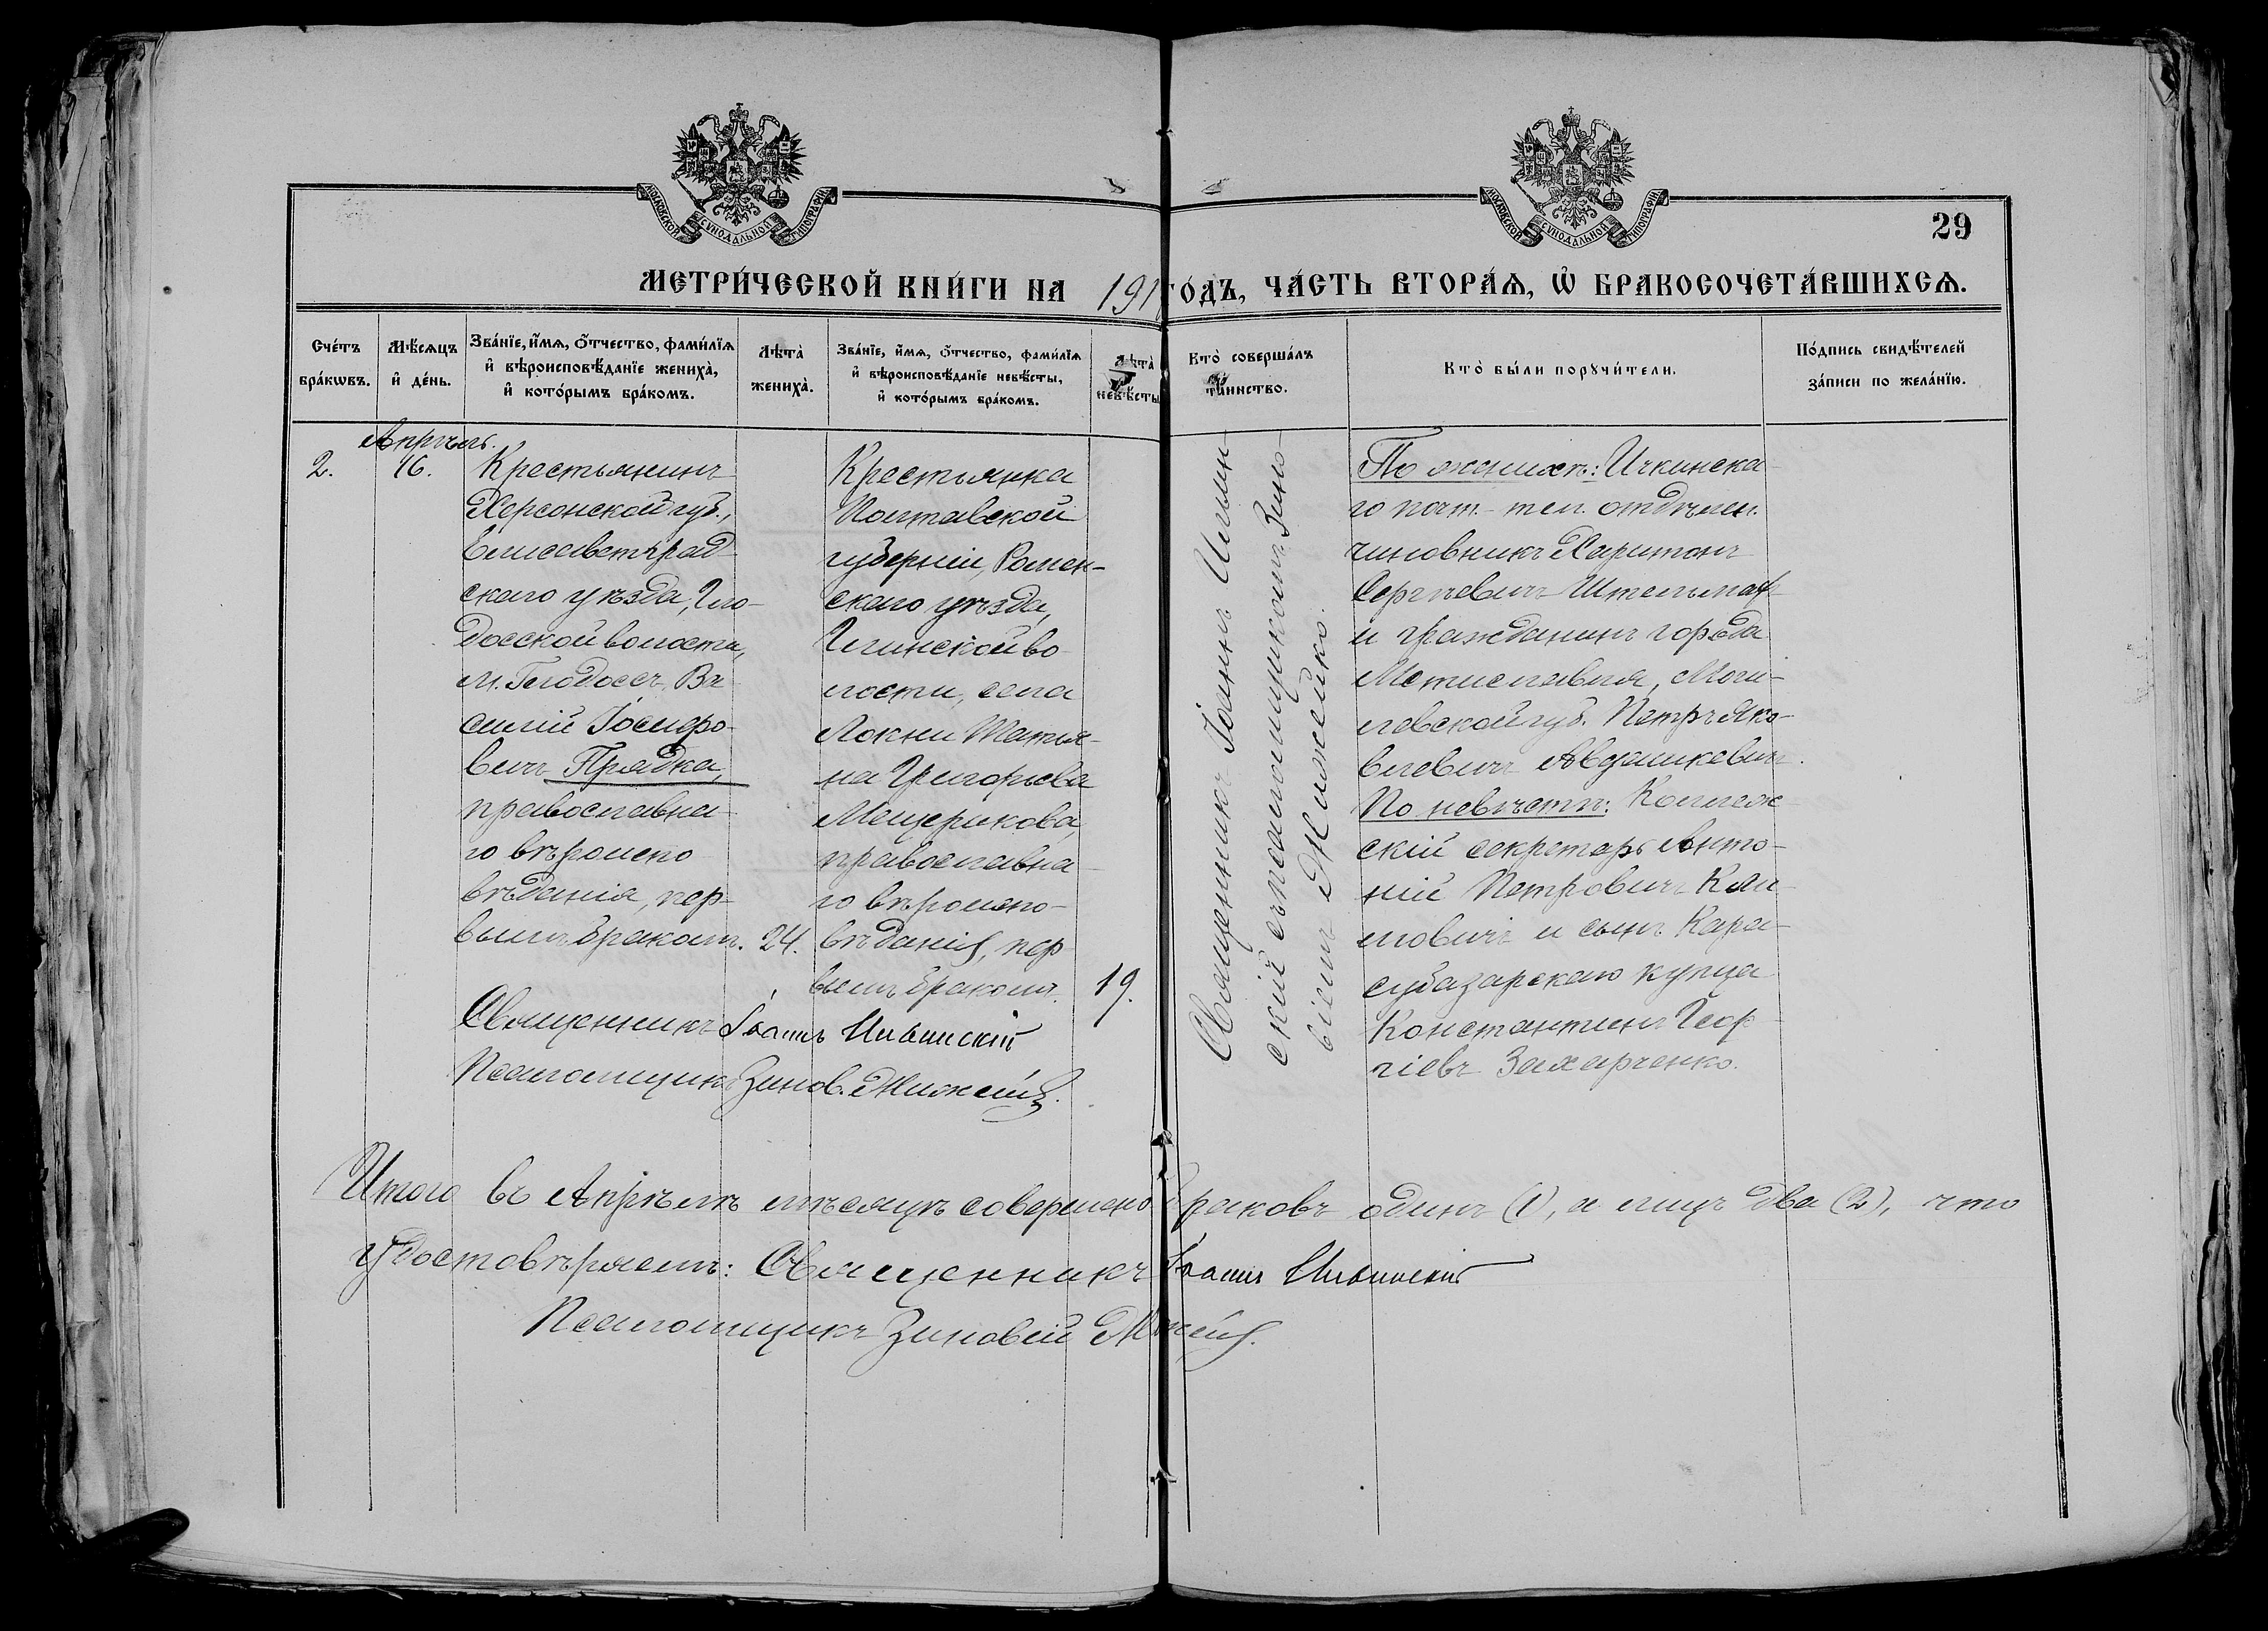 МОСКОВСКОЙ СѴНОДАЛЬНОЙ ТИПОГРАФІИ
МОСКОВСКОЙ СѴНОДАЛЬНОЙ ТИПОГРАФІИ
29
МЕТРИ́ЧЕСКОЙ КНИ́ГИ НА 191 ГО́ДЪ, ЧА́СТЬ ВТОРА́Ѧ, Ѡ҆ БРАКОСОЧЕТА́ВШИХСѦ.
Сче́тъ бра́кѡвъ.
Мѣ́сѧцъ и҆ де́нь.
Зва́нїе, и҆́мѧ, ѻ҆́тчество, фами́лїѧ и҆ вѣроисповѣ́данїе жениха̀, и҆ кото́рымъ бра́комъ.
Лѣта̀ жениха̀.
Зва́нїе, и҆́мѧ, ѻ҆́тчество, фами́лїѧ и҆ вѣроисповѣ́данїе невѣ́сты, и҆ кото́рымъ бра́комъ.
Лѣта̀ невѣ́сты
Кто̀ соверша́лъ та́инство.
Кто̀ бы́ли порꙋчи́тели.
По́дпись свидѣ́телей за́писи по жела́нїю.
Апрѣль.
2.
16.
Крестьянинъ
Херсонской губ.,
Елисаветград
скаго уѣзда, Гло-
досской волости,
м. Глодоссъ, Ва
силій Іосифо-
вичъ Прядка,
православна-
го вѣроиспо
вѣданія, пер-
вымъ бракомъ.
24.
Крестьянка
Полтавской
губерніи, Ромен-
скаго уѣзда,
во-
лости, села
Локни Татья-
на Григорьева
Мещерякова,
православна-
го вѣроиспо-
вѣданія, пер
вымъ бракомъ.
19.
Священникъ Іоаннъ Ильин-
скій съ псаломщикомъ Зино-
віемъ Жижейко.
По женихѣ: Ичкинска-
го почт.-тел. отдѣлен.
чиновникъ Харитонъ
Сергѣевичъ Штельмах
и гражданинъ города
Мстиславля, Моги-
левской губ. Петръ Яко-
влевичъ Авдашкевичъ.
По невѣстѣ: Коллеж-
скій секретарь Анто-
ній Петровичъ Кли-
мовичъ и сынъ Кара-
субазарскаго купца
Константинъ Геор-
гіевъ Захарченко.
Священникъ Іоаннъ Ильинскій
Псаломщикъ Зинов. Жижейко.
Итого въ Апрѣлѣ мѣсяцѣ совершено браковъ одинъ (1), а лицъ два (2), что
удостовѣряемъ: Священникъ Іоаннъ Ильинскій
Псаломщикъ Зиновій